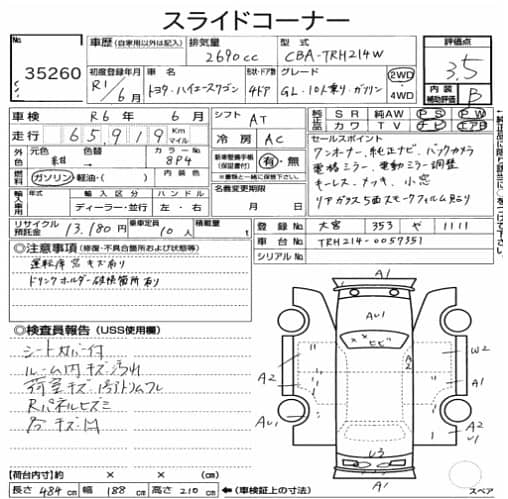 スライドコーナー
No
35260
車歴 (自家用以外は記入) 排気量 2690cc 型式 CBA-TRH214W
評価点 3.5
初度登録年月 R1/6月 車名 トヨタ・ハイエースワゴン 形状・ドア数 4ドア グレード GL・10人乗り・ガソリン 2WD ・4WD
内装補助評価 B
車検 R6年 6月 シフト AT
純正品 SR 純AW PS PW
カワ TV ナビ エアB
走行 65919 Km マイル 冷房 AC
セールスポイント
ワンオーナー、純正ナビ、バックカメラ
電格ミラー、電動ミラー調整
キーレス、メッキ、小窓
リアガラス5面スモークフィルム貼り
外色 元色 紺 → 色替 カラーNo 8P4
新車整備手帳(保証書) 有・無
※書類と一緒に保管下さい。
燃料 ガソリン・軽油・( ) 内装色
名義変更期限 月 日
輸入車用 年式 輸入区分 ディーラー・並行 ハンドル 左・右
リサイクル預託金 13,180円 乗車定員 10人 積載量 t
登録No 大宮 353 や 1111
車台No TRH214-0057351
シリアルNo
◎注意事項 (修復・不具合箇所および状態等)
運転席窓キズ有り
ドリンクホルダー破損箇所有り
◎検査員報告 (USS使用欄)
シートカバー付
ルーム内キズ汚れ
荷室キズ 内張トリムフレ
Rパネルヒズミ
A1
AU1
××ヒビ
A2
W2
A2
A1
AU1
A2
U1
U3
A1
スペア
【荷台内寸】約 × × (cm)
長さ 484cm 幅 188cm 高さ 210cm ←(車検証上の寸法)